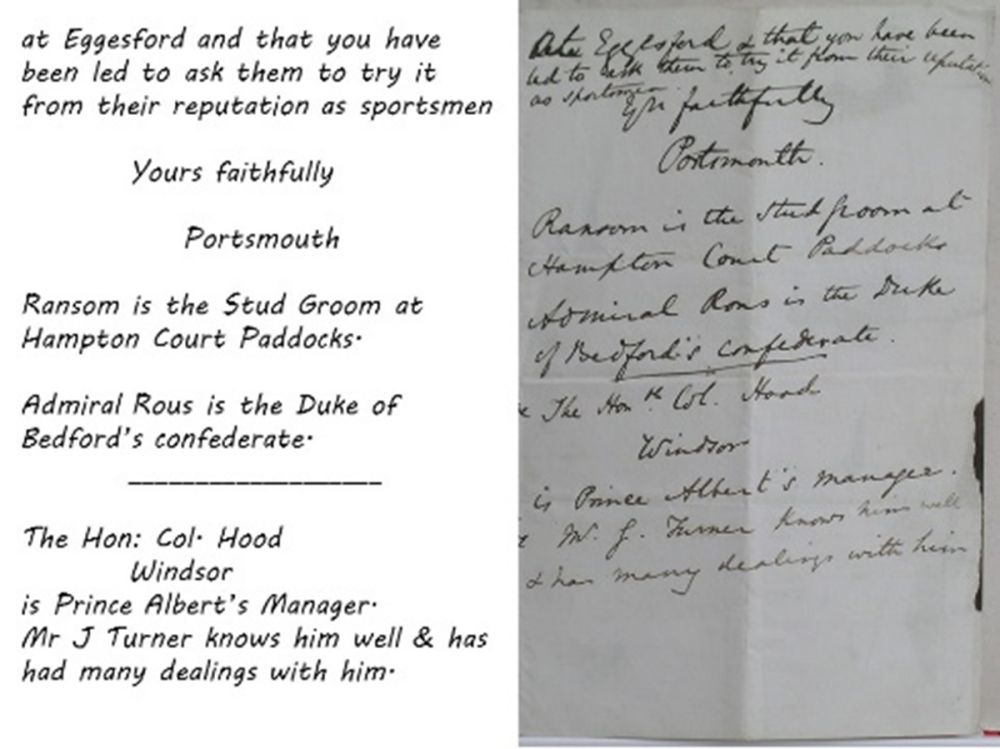 at Eggesford and that you have
been led to ask them to try it
from their reputation as sportsmen
Yours faithfully
Portsmouth
Ransom is the Stud Groom at
Hampton Court Paddocks.
Admiral Rous is the Duke of
Bedford's confederate.
The Hon: Col. Hood
Windsor
is Prince Albert's Manager.
Mr J Turner knows him well & has
had many dealings with him.
Eggesford & that you have been
led to ask them to try it from their reputation
as sportsmen
faithfully
Portsmouth.
Ransom is the Stud groom at
Hampton Court Paddocks
Admiral Rous is the Duke
of Bedford's confederate.
The Hon. Col. Hood
Windsor
is Prince Albert's manager.
Turner knows him well
& has many dealings with him